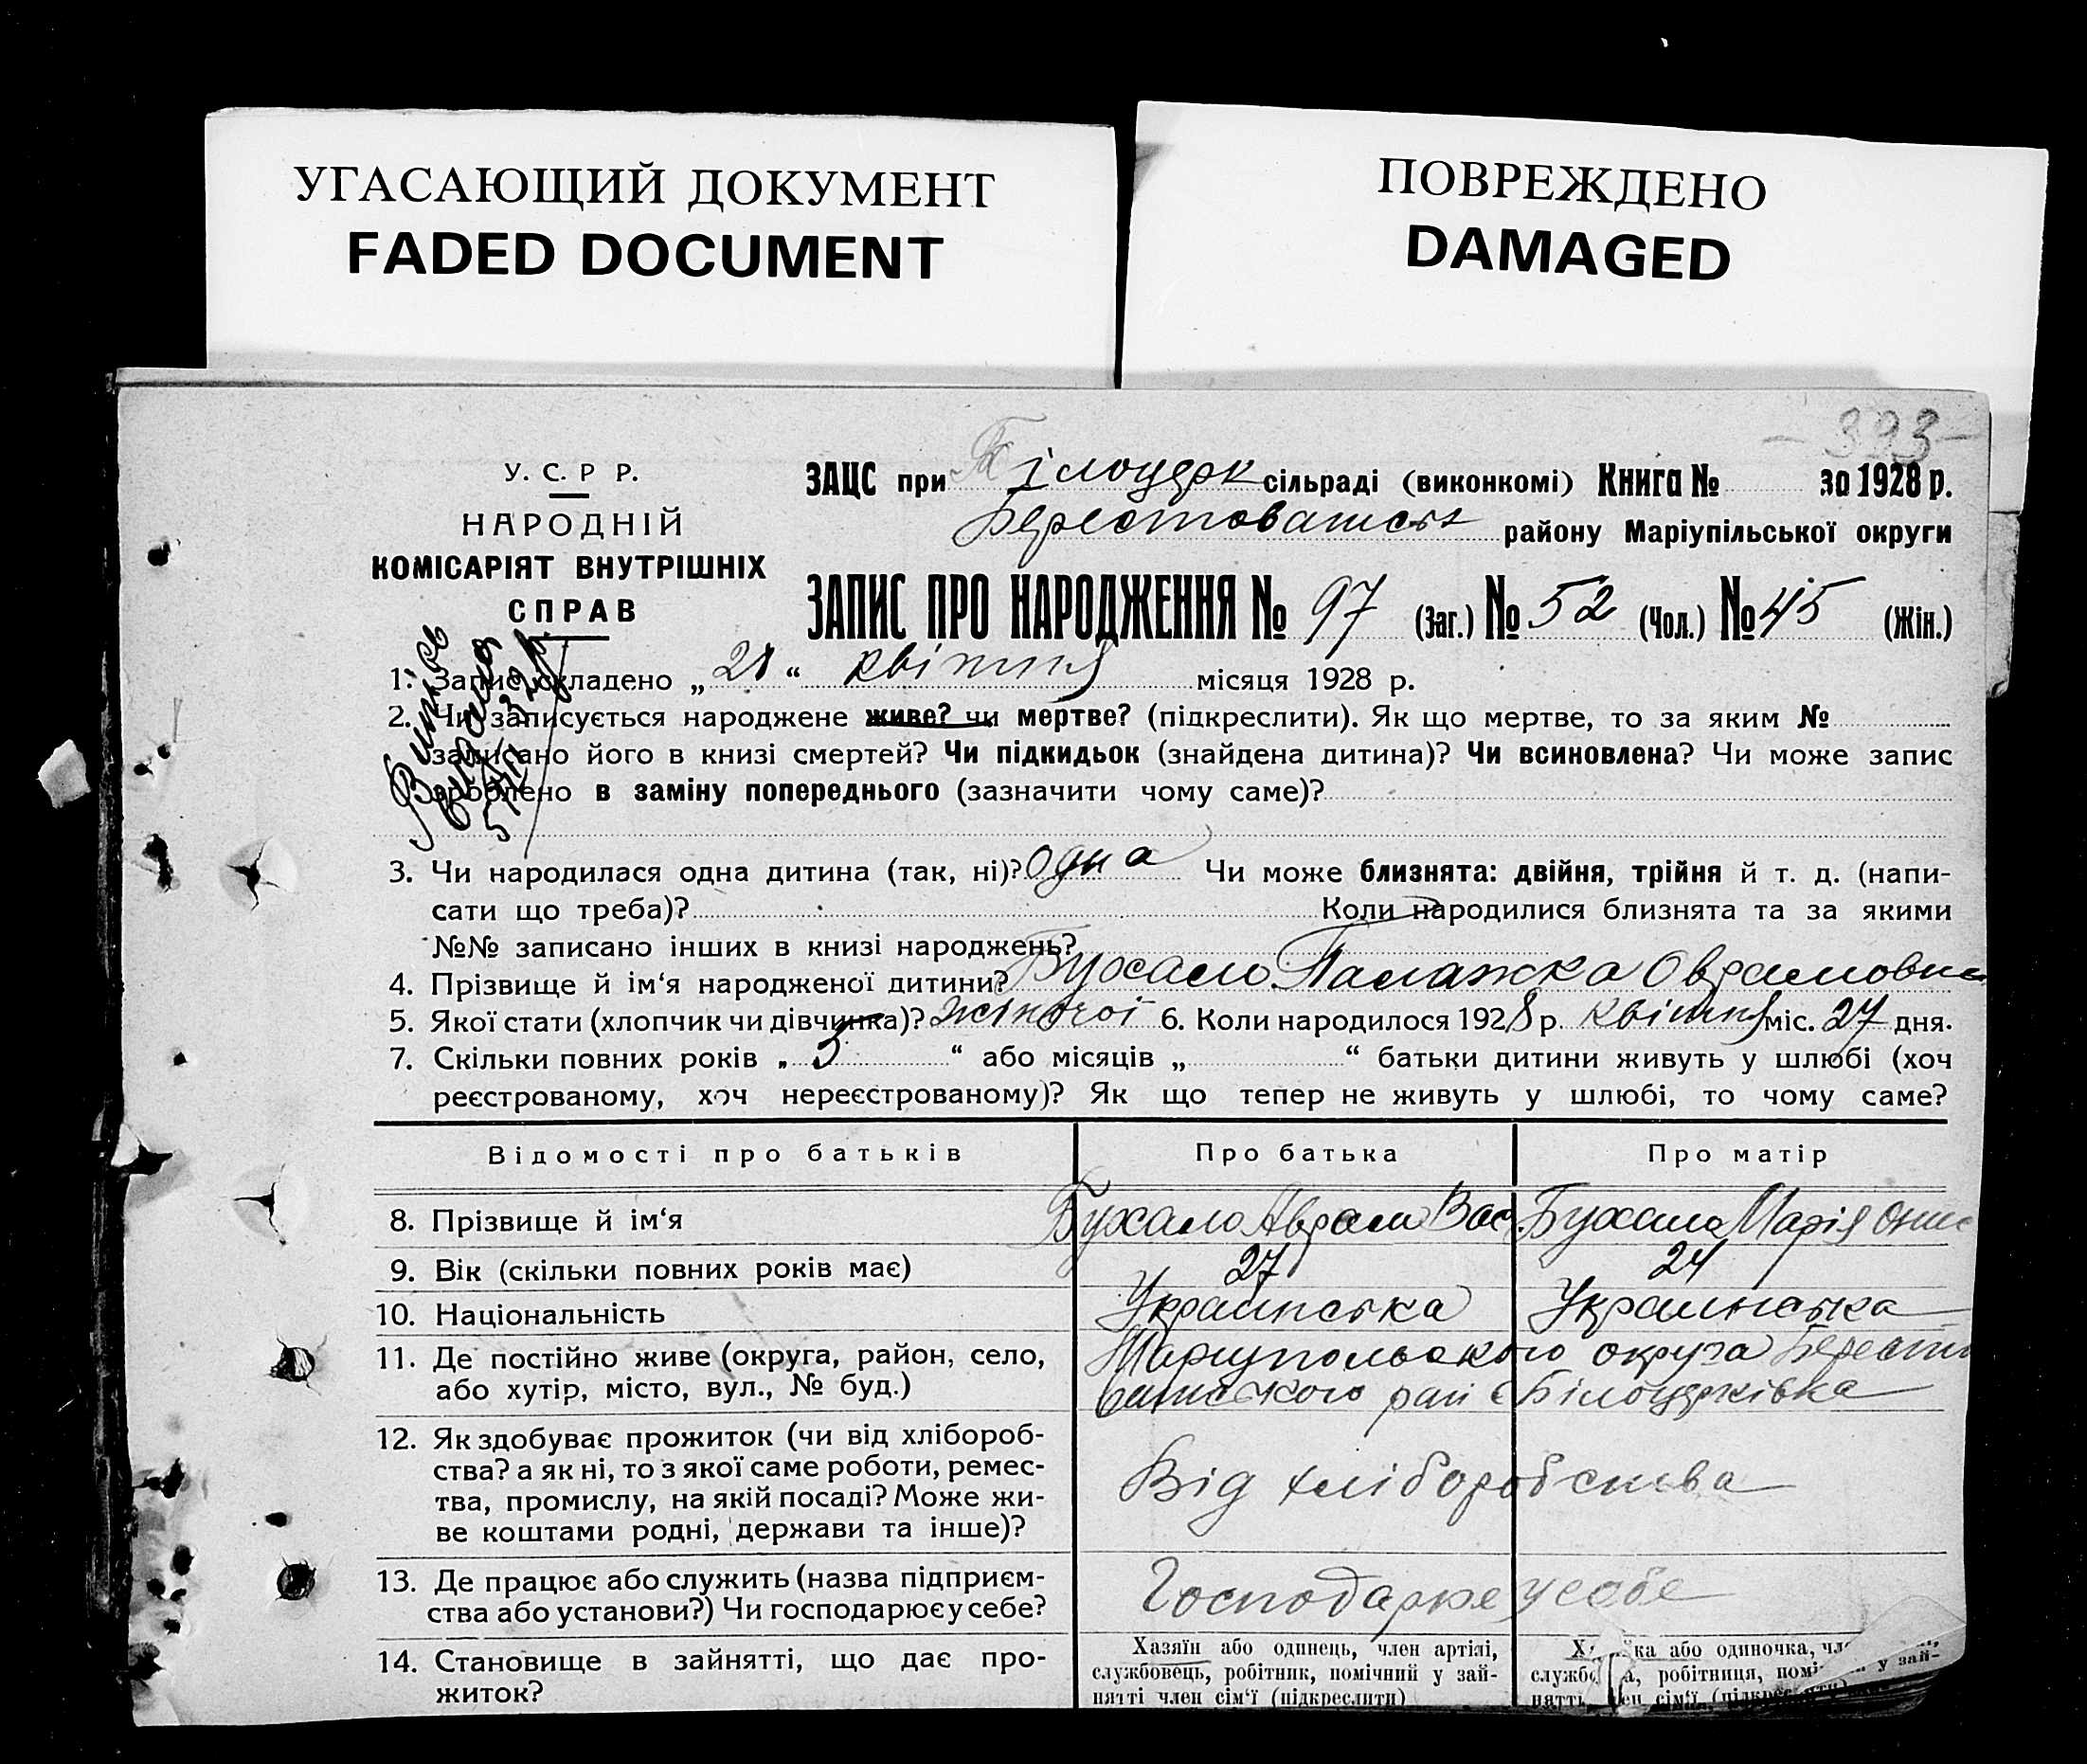 УГАСАЮЩИЙ ДОКУМЕНТ
FADED DOCUMENT
ПОВРЕЖДЕНО
DAMAGED
– 393 –
У. С. Р Р.
НАРОДНІЙ
КОМІСАРІЯТ ВНУТРІШНІХ
СПРАВ
ЗАЦС при Білоцерк сільраді (виконкомі) Книга № за 1928 р.
Берестоватськ району Маріупільської округи
ЗАПИС ПРО НАРОДЖЕННЯ № 97 (Заг.) № 52 (Чол.) № 45 (Жін.)
1. Запис складено „ 28 “ квітня місяця 1928 р.
2. Чи записується народжене живе? чи мертве? (підкреслити). Як що мертве, то за яким №
записано його в книзі смертей? Чи підкидьок (знайдена дитина)? Чи всиновлена? Чи може запис
зроблено в заміну попереднього (зазначити чому саме)?
3. Чи народилася одна дитина (так, ні)? Одна Чи може близнята: двійня, трійня й т. д. (напи-
сати що треба)? Коли народилися близнята та за якими
№№ записано інших в книзі народжень?
4. Прізвище й ім‘я народженої дитини? Бухало Палажка Оврамовна
5. Якої стати (хлопчик чи дівчинка)? жіночої 6. Коли народилося 1928 р. квітня міс. 27 дня.
7. Скільки повних років „ 5 “ або місяців „ “ батьки дитини живуть у шлюбі (хоч
реєстрованому, хоч нереєстрованому)? Як що тепер не живуть у шлюбі, то чому саме?
Відомості про батьків Про батька Про матір
8. Прізвище й ім‘я Бухало Аврам Вас. Бухало Марія
9. Вік (скільки повних років має) 27 24
10. Національність Украінська Украінська
11. Де постійно живе (округа, район, село, Маріупольского округа Берест
або хутір, місто, вул., № буд.) ватського рай с Білоцерківка
12. Як здобуває прожиток (чи від хлібороб-
ства? а як ні, то з якої саме роботи, ремес- Від хліборобства
тва, промислу, на якій посаді? Може жи-
ве коштами родні, держави та інше)?
13. Де працює або служить (назва підприєм- Господарює у себе
ства або установи?) Чи господарює у себе?
14. Становище в зайнятті, що дає про-
житок?
Хазяїн або одинець, член артілі,
службовець, робітник, помічний у зай-
нятті член сім‘ї (підкреслити)
або одиночка,
робітниця, у зай-
нятті, член сім‘ї
Витяг
видано